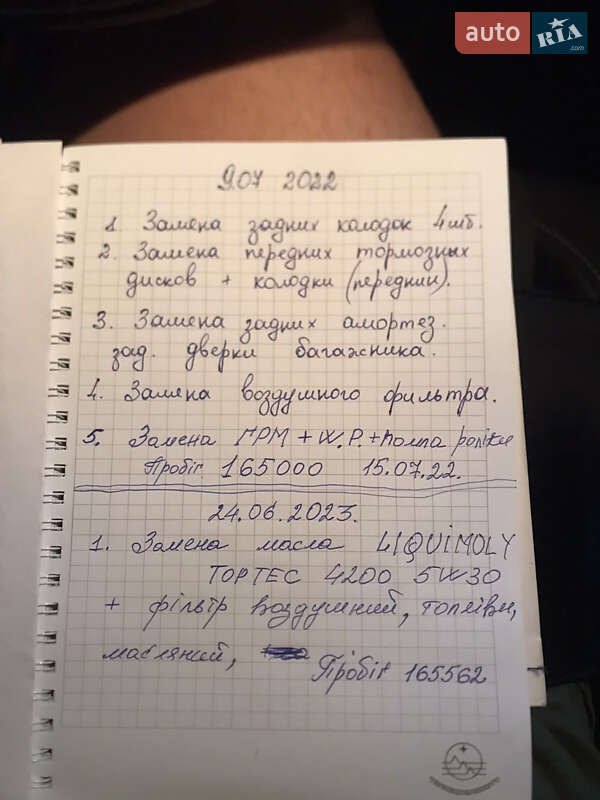 auto RIA .com
9.07 2022
1. Замена задних колодок 4шт.
2. Замена передних тормозных
дисков + колодки (передний).
3. Замена задних амортез.
зад. дверки багажника.
4. Замена воздушного фильтра.
5. Замена ГРМ + W.P. + помпа роліки
Пробіг 165000 15.07.22.
24.06.2023.
1. Замена масла LIQUIMOLY
TOPTEC 4200 5W30
+ фільтр воздушний, топлівн,
масляний,
Пробіг 165562